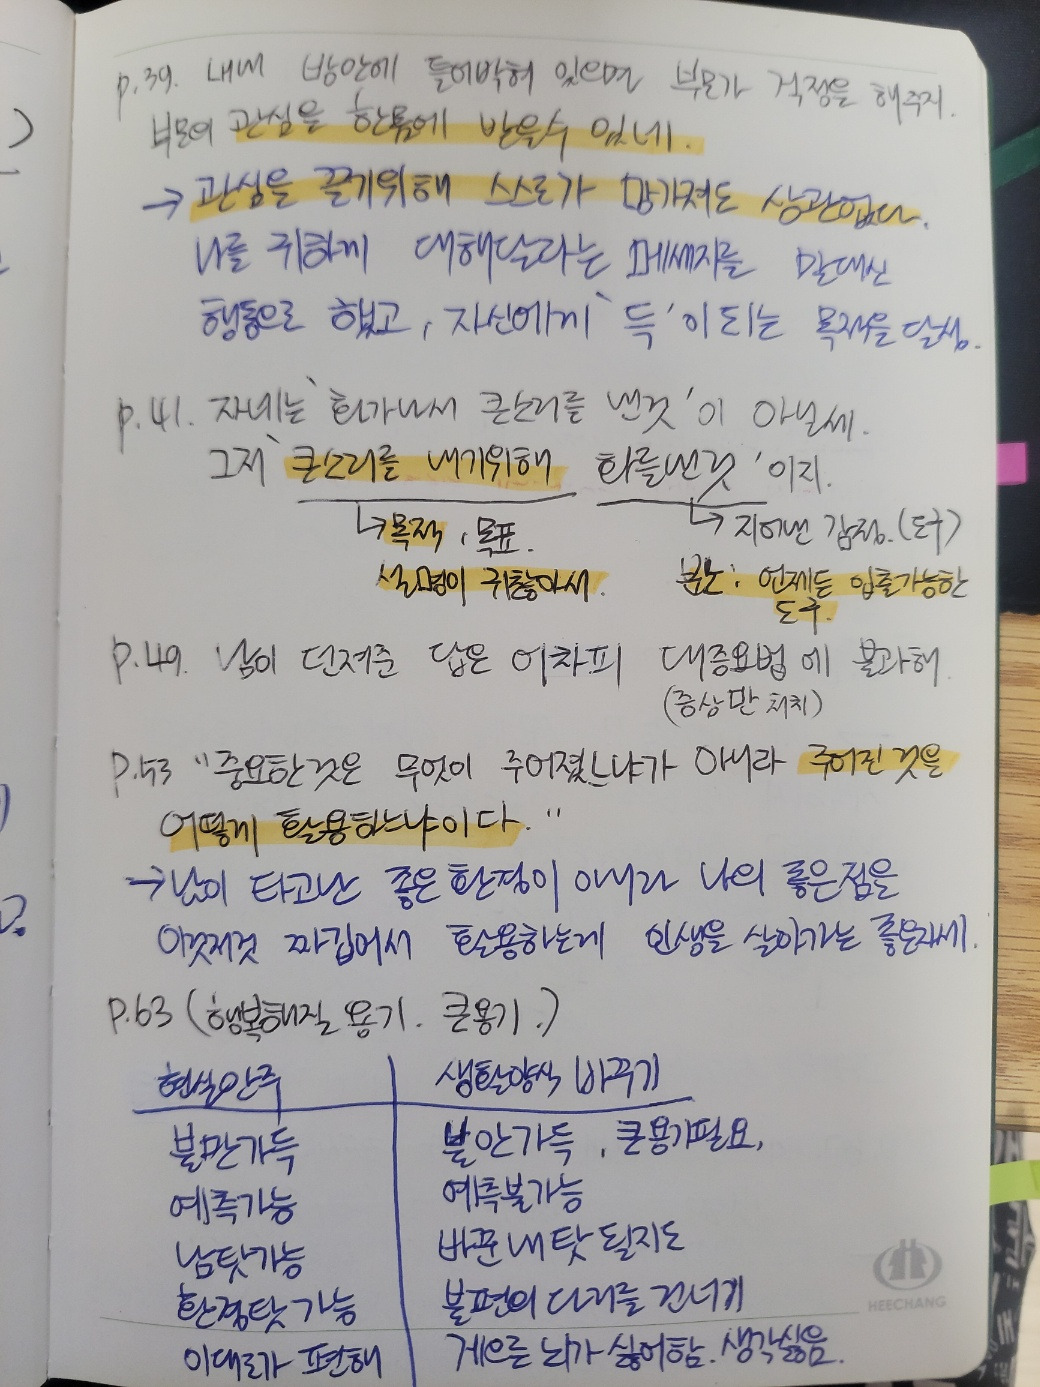 p.39. 내내 방안에 틀어박혀 있으면 부모가 걱정을 해주지.
부모의 관심을 한몸에 받을수 있네.
→ 관심을 끌기위해 스스로가 망가져도 상관없다.
나를 귀하게 대해달라는 메세지를 말대신
행동으로 했고, 자신에게 '득'이 되는 목적을 달성.
p.41. 자네는 '화가나서 큰소리를 낸것'이 아닐세.
그저 '큰소리를 내기위해 화를낸것'이지.
↳ 목적, 목표. ↳ 지어낸 감정.(도구)
설명이 귀찮아서. 분노: 언제든 입출가능한
도구.
p.49. 남이 던져준 답은 어차피 대증요법에 불과해.
(증상만 처치)
p.53 "중요한것은 무엇이 주어졌느냐가 아니라 주어진 것을
어떻게 활용하느냐이다."
→ 남이 타고난 좋은 환경이 아니라 나의 좋은점을
이것저것 짜깁어서 활용하는게 인생을 살아가는 좋은자세.
p.63 (행복해질 용기. 큰용기.)
현실안주 생활양식 바꾸기
불만가득 불안가득, 큰용기필요,
예측가능 예측불가능
남탓가능 바꾼 내 탓 될지도
환경탓 가능 불편의 다리를 건너기
이대로가 편해 게으른 뇌가 싫어함. 생각싫음.
HEECHANG